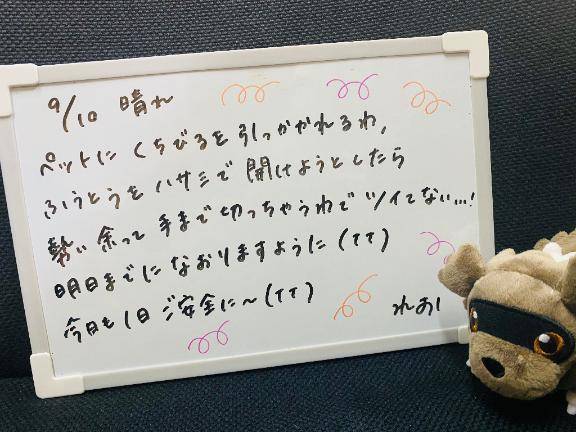 9/10 晴れ
ペットに くちびるを引っかかれるわ,
ふうとうを ハサミで 開けようとしたら
勢い 余って 手まで 切っちゃうわで ツイてない…!
明日までに なおりますように (TT)
今日も 1日 ご安全に〜(TT)
れおし